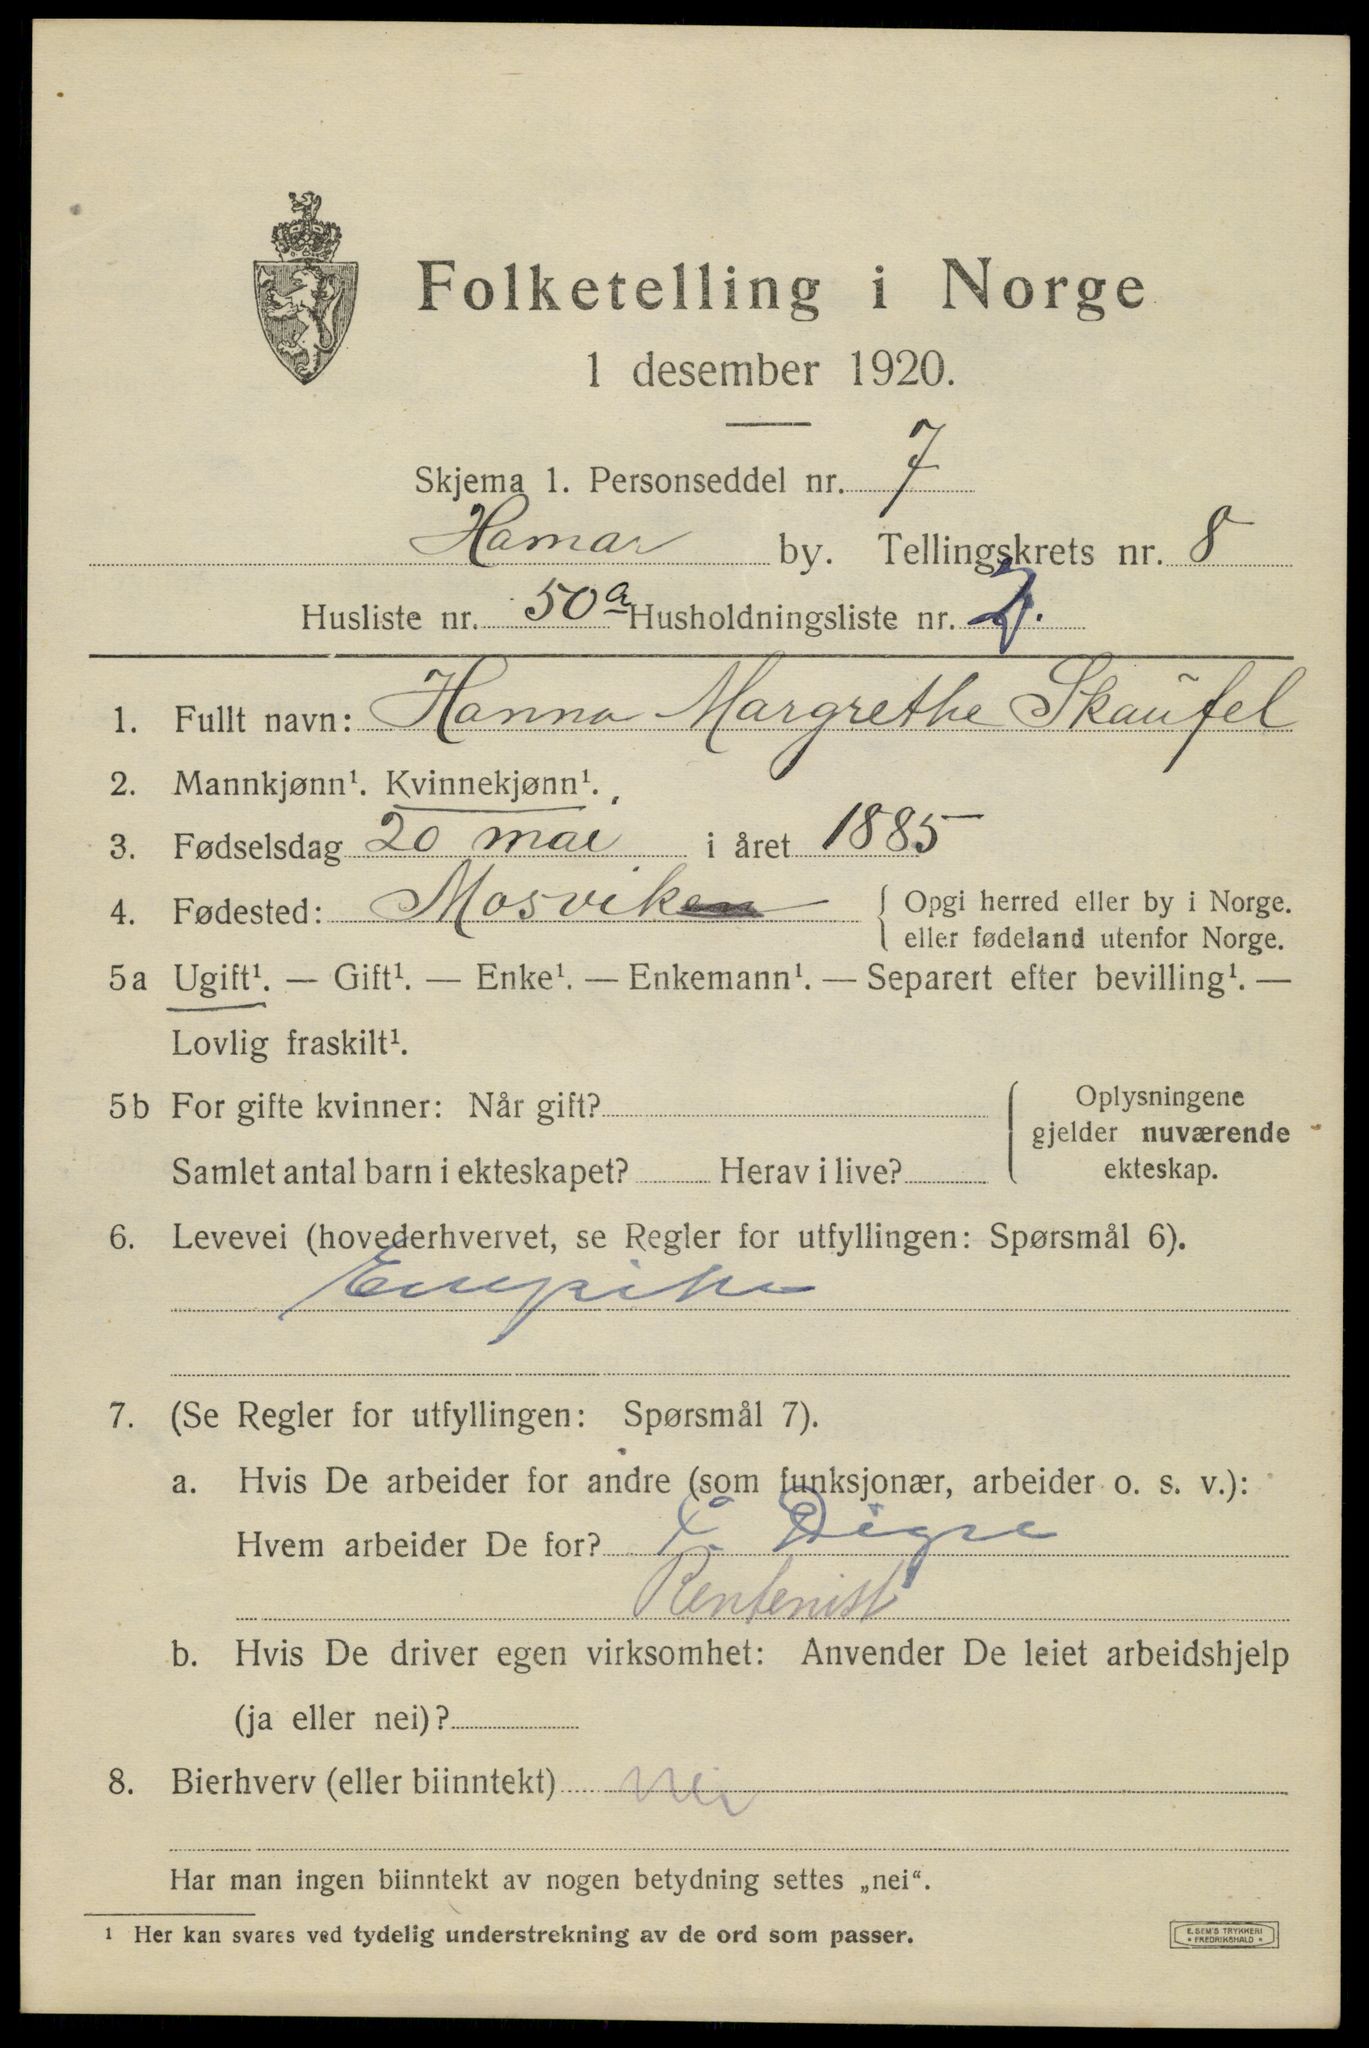 Folketelling i Norge
1 desember 1920.
Skjema 1. Personseddel nr. 7
Hamar by. Tellingskrets nr. 8
Husliste nr. 50a Husholdningsliste nr. 2.
1. Fullt navn: Hanna Margrethe Skaufel
2. Mannkjønn¹. Kvinnekjønn¹.
3. Fødselsdag 20 mai i året 1885
4. Fødested: Mosviken { Opgi herred eller by i Norge.
eller fødeland utenfor Norge.
5a Ugift¹. — Gift¹. — Enke¹. — Enkemann¹. — Separert efter bevilling¹. —
Lovlig fraskilt¹.
5b For gifte kvinner: Når gift? Oplysningene
gjelder nuværende
Samlet antal barn i ekteskapet? Herav i live? ekteskap.
6. Levevei (hovederhvervet, se Regler for utfyllingen: Spørsmål 6).
Enepike
7. (Se Regler for utfyllingen: Spørsmål 7).
a. Hvis De arbeider for andre (som funksjonær, arbeider o. s. v.):
Hvem arbeider De for? Digre
Rentenist
b. Hvis De driver egen virksomhet: Anvender De leiet arbeidshjelp
(ja eller nei)?
8. Bierhverv (eller biinntekt) nei
Har man ingen biinntekt av nogen betydning settes „nei“.
¹ Her kan svares ved tydelig understrekning av de ord som passer.
E. SEM'S TRYKKERI
• FREDRIKSHALD •